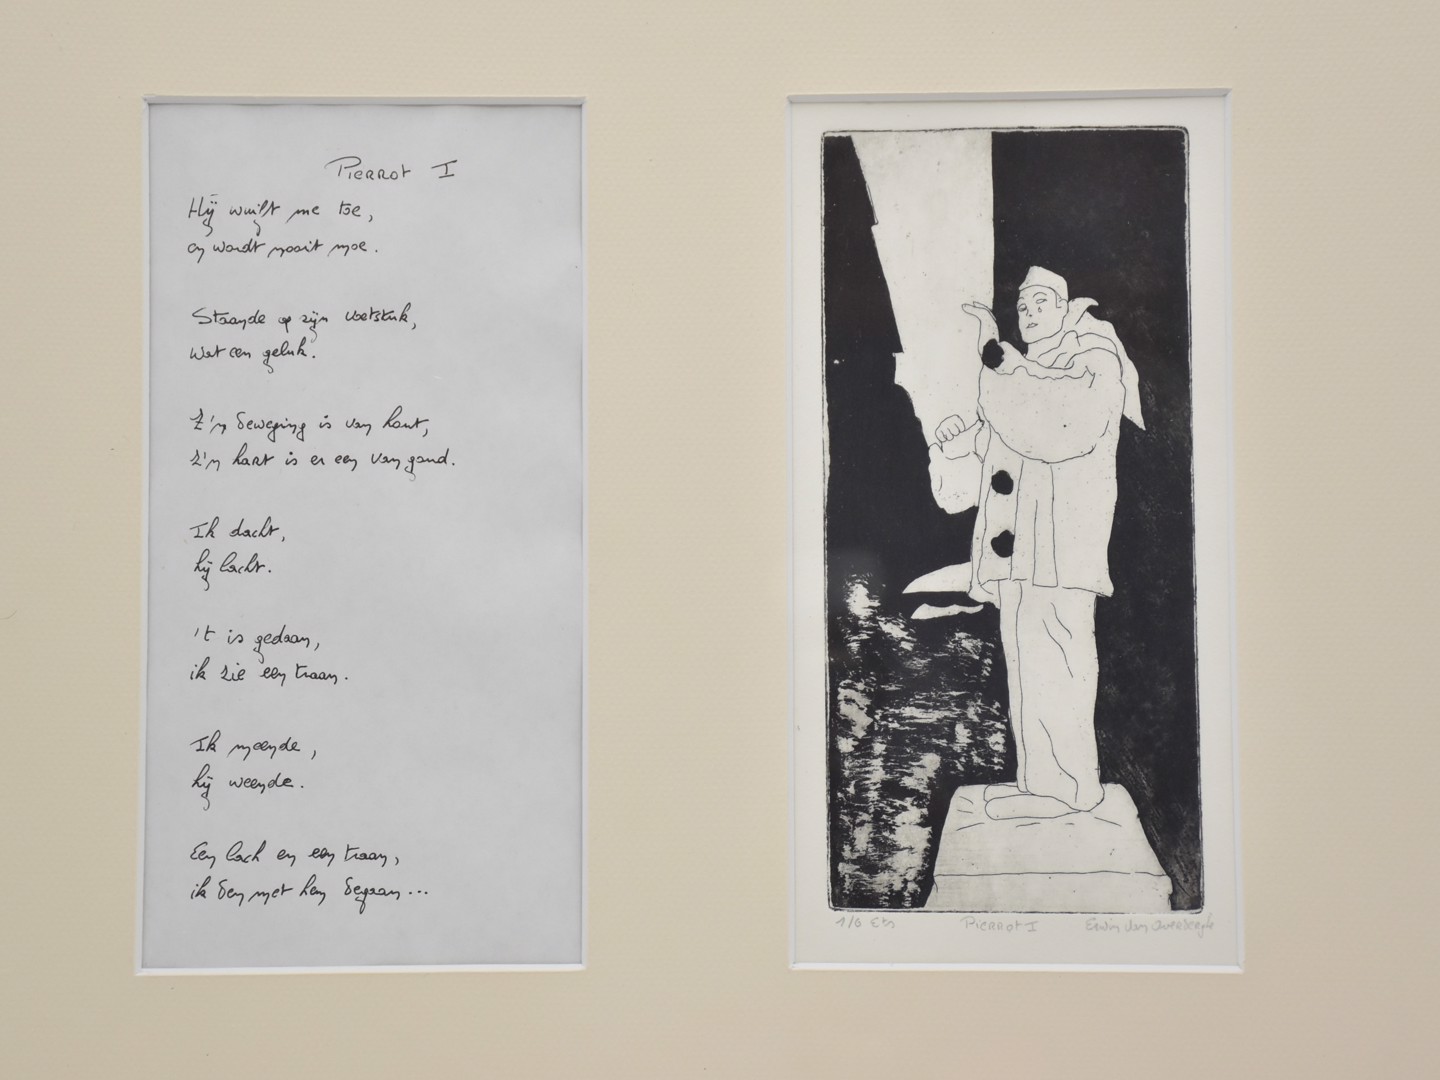 Pierrot I
Hij wuift me toe,
en wordt nooit moe.
Staande op zijn voetstuk,
Wat een geluk.
Z'n beweging is van hout,
Z'n hart is er een van goud.
Ik dacht,
hij lacht.
't is gedaan,
ik zie een traan.
Ik meende,
hij weende.
Een lach en een traan,
ik ben met hem begaan...
1/6 Ets Pierrot I Erwin Van Overbergh